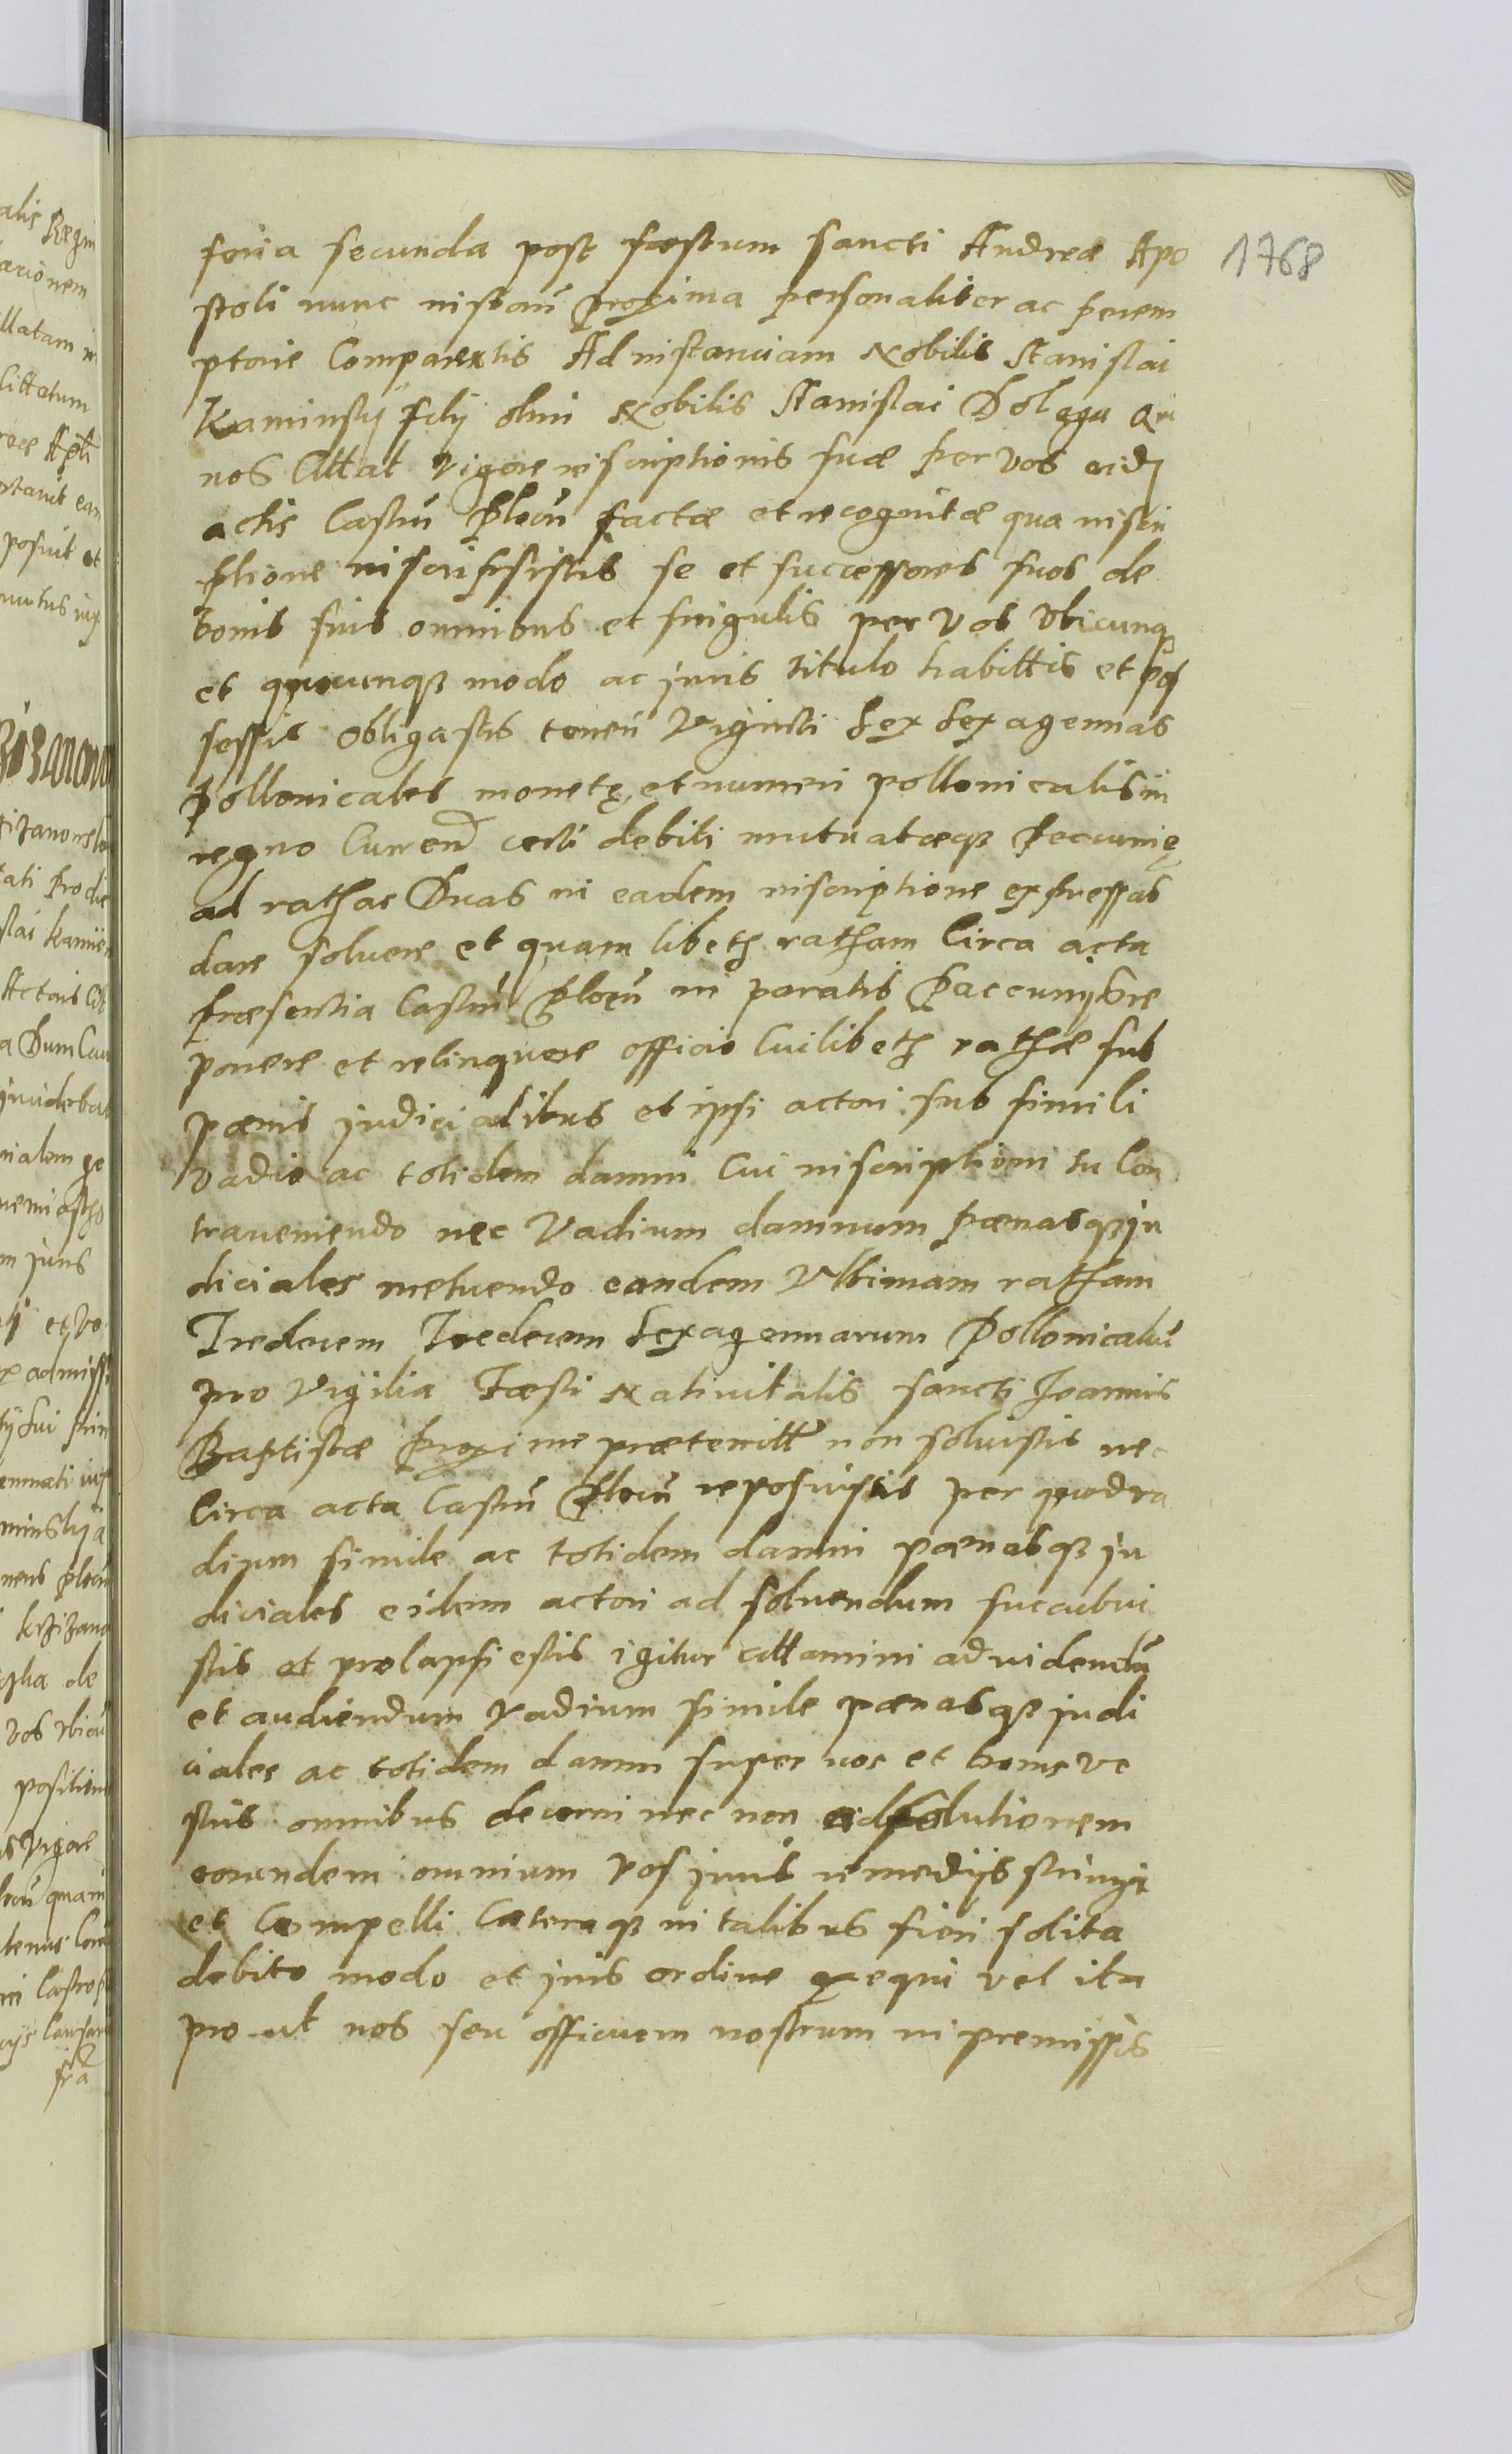 feria secunda post fęstum sancti Andreæ Apo
1768
stoli nunc instan̄ proxima personaliter ac perem
ptorie Comparertis Ad instanciam Nobilis Stanislai
Kaminsky filij olim Nobilis Stanislai Dolęga qui
vos Cittat Vigore inscriptionis suæ per vos eidem
actis Castreñ Plocen̄ factæ et recognitæ qua inscri
ptione inscripsistis se et successores suos de
bonis suis omnibus et singulis per vos vbicunq
et quocunqȝ modo ac juris titulo habittis et pos
sessis obligastis teneri Viginti Sex Sexagennas
Pollonicales monetę et numeri pollonicalis in
regno Curren̄ certi debiti mutuatæqȝ Pecunię
ad rathas Duas in eadem inscriptione expressas
dare soluere et quam libeth ratham Circa acta
præsentia Castreñ Plocen̄ in paratis Paecunijs re
ponere et relinquere officio Cuilibeth rathæ sub
pœnis judicialibus et ipsi actori sub simili
vadio ac totidem damni Cui inscriptioni tu Con
traueniendo nec Vadium damnum pœnasqȝ ju
diciales metuendo eandem Vltimam ratham
Tredecem Tredecem Sexagennarum Pollonicaliū
pro Vigilia Fæsti Natiuitatis sancti Joannis
Baptistæ proxime præteritt non soluistis nec
Circa acta Castreñ Plocen̄ reposuistis per quod va
dium simile ac totidem damni pœnasqȝ ju
diciales eidem actori ad soluendum succubui
stis et prolapsi estis igitur cittamini ad videndū
et audiendum Vadium simile pœnasqȝ judi
ciales ac totidem damni super vos et bonis ve
stris omnibus decerni nec non ad solutionem
eorundem omnium Vos juris remedijs stringi
et Compelli Cæteraqȝ in talibus fieri solita
debito modo et juris ordine exequi vel ita
pro ut nos seu officium nostrum in premissis